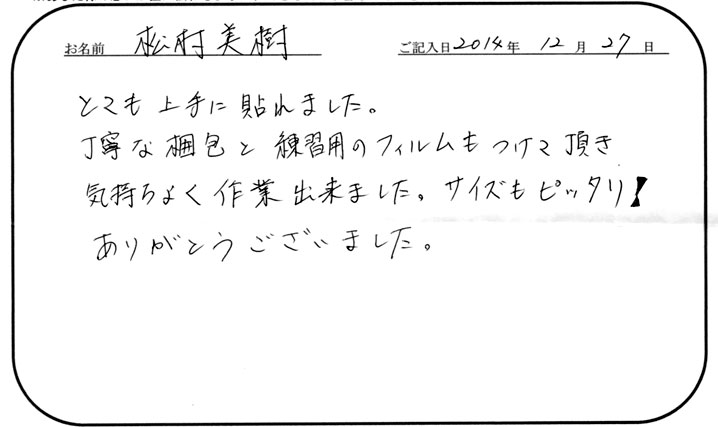 お名前 松村美樹 ご記入日2014年 12月 27日
とても上手に貼れました。
丁寧な梱包と練習用のフィルムもつけて頂き
気持ちよく作業出来ました。サイズもピッタリ!
ありがとうございました。